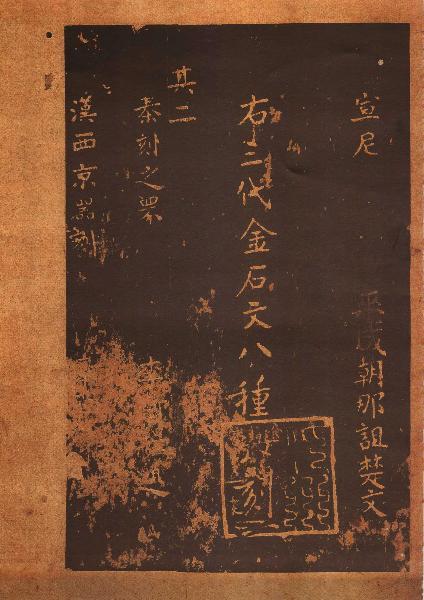 宣尼
巫咸朝那詛楚文
右三代金石文八種
其二
秦刻之罘
漢西京器刻